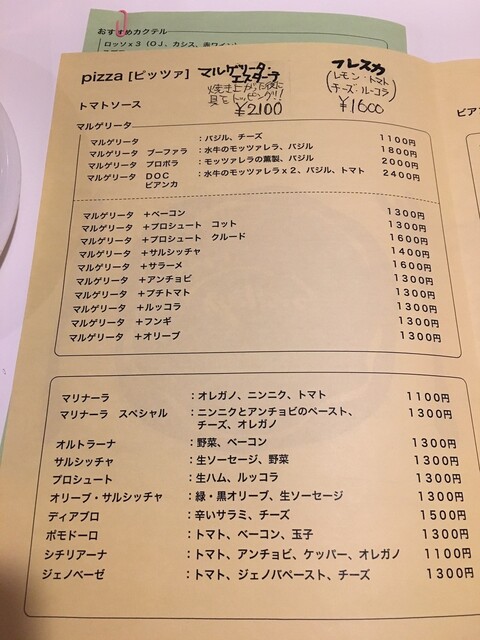 おすすめカクテル
ロッソｘ３（ＯＪ、カシス、赤ワイン）
pizza [ピッツァ]
マルゲリータ・エスターテ
焼き上がった後に
具をトッピング!!
¥2100
フレスカ
(レモン・トマト
チーズ・ルーコラ)
¥1600
トマトソース
マルゲリータ
マルゲリータ ：バジル、チーズ 1100円
マルゲリータ ブーファラ ：水牛のモッツァレラ、バジル 1800円
マルゲリータ プロボラ ：モッツァレラの薫製、バジル 2000円
マルゲリータ ＤＯＣ ：水牛のモッツァレラｘ２、バジル、トマト 2400円
ビアンカ
マルゲリータ ＋ベーコン 1300円
マルゲリータ ＋プロシュート コット 1300円
マルゲリータ ＋プロシュート クルード 1600円
マルゲリータ ＋サルシッチャ 1400円
マルゲリータ ＋サラーメ 1600円
マルゲリータ ＋アンチョビ 1300円
マルゲリータ ＋プチトマト 1300円
マルゲリータ ＋ルッコラ 1300円
マルゲリータ ＋フンギ 1300円
マルゲリータ ＋オリーブ 1300円
マリナーラ ：オレガノ、ニンニク、トマト 1100円
マリナーラ スペシャル ：ニンニクとアンチョビのペースト、 1300円
チーズ、オレガノ
オルトラーナ ：野菜、ベーコン 1300円
サルシッチャ ：生ソーセージ、野菜 1300円
プロシュート ：生ハム、ルッコラ 1300円
オリーブ・サルシッチャ ：緑・黒オリーブ、生ソーセージ 1300円
ディアブロ ：辛いサラミ、チーズ 1500円
ポモドーロ ：トマト、ベーコン、玉子 1300円
シチリアーナ ：トマト、アンチョビ、ケッパー、オレガノ 1100円
ジェノベーゼ ：トマト、ジェノバペースト、チーズ 1300円
ビアン